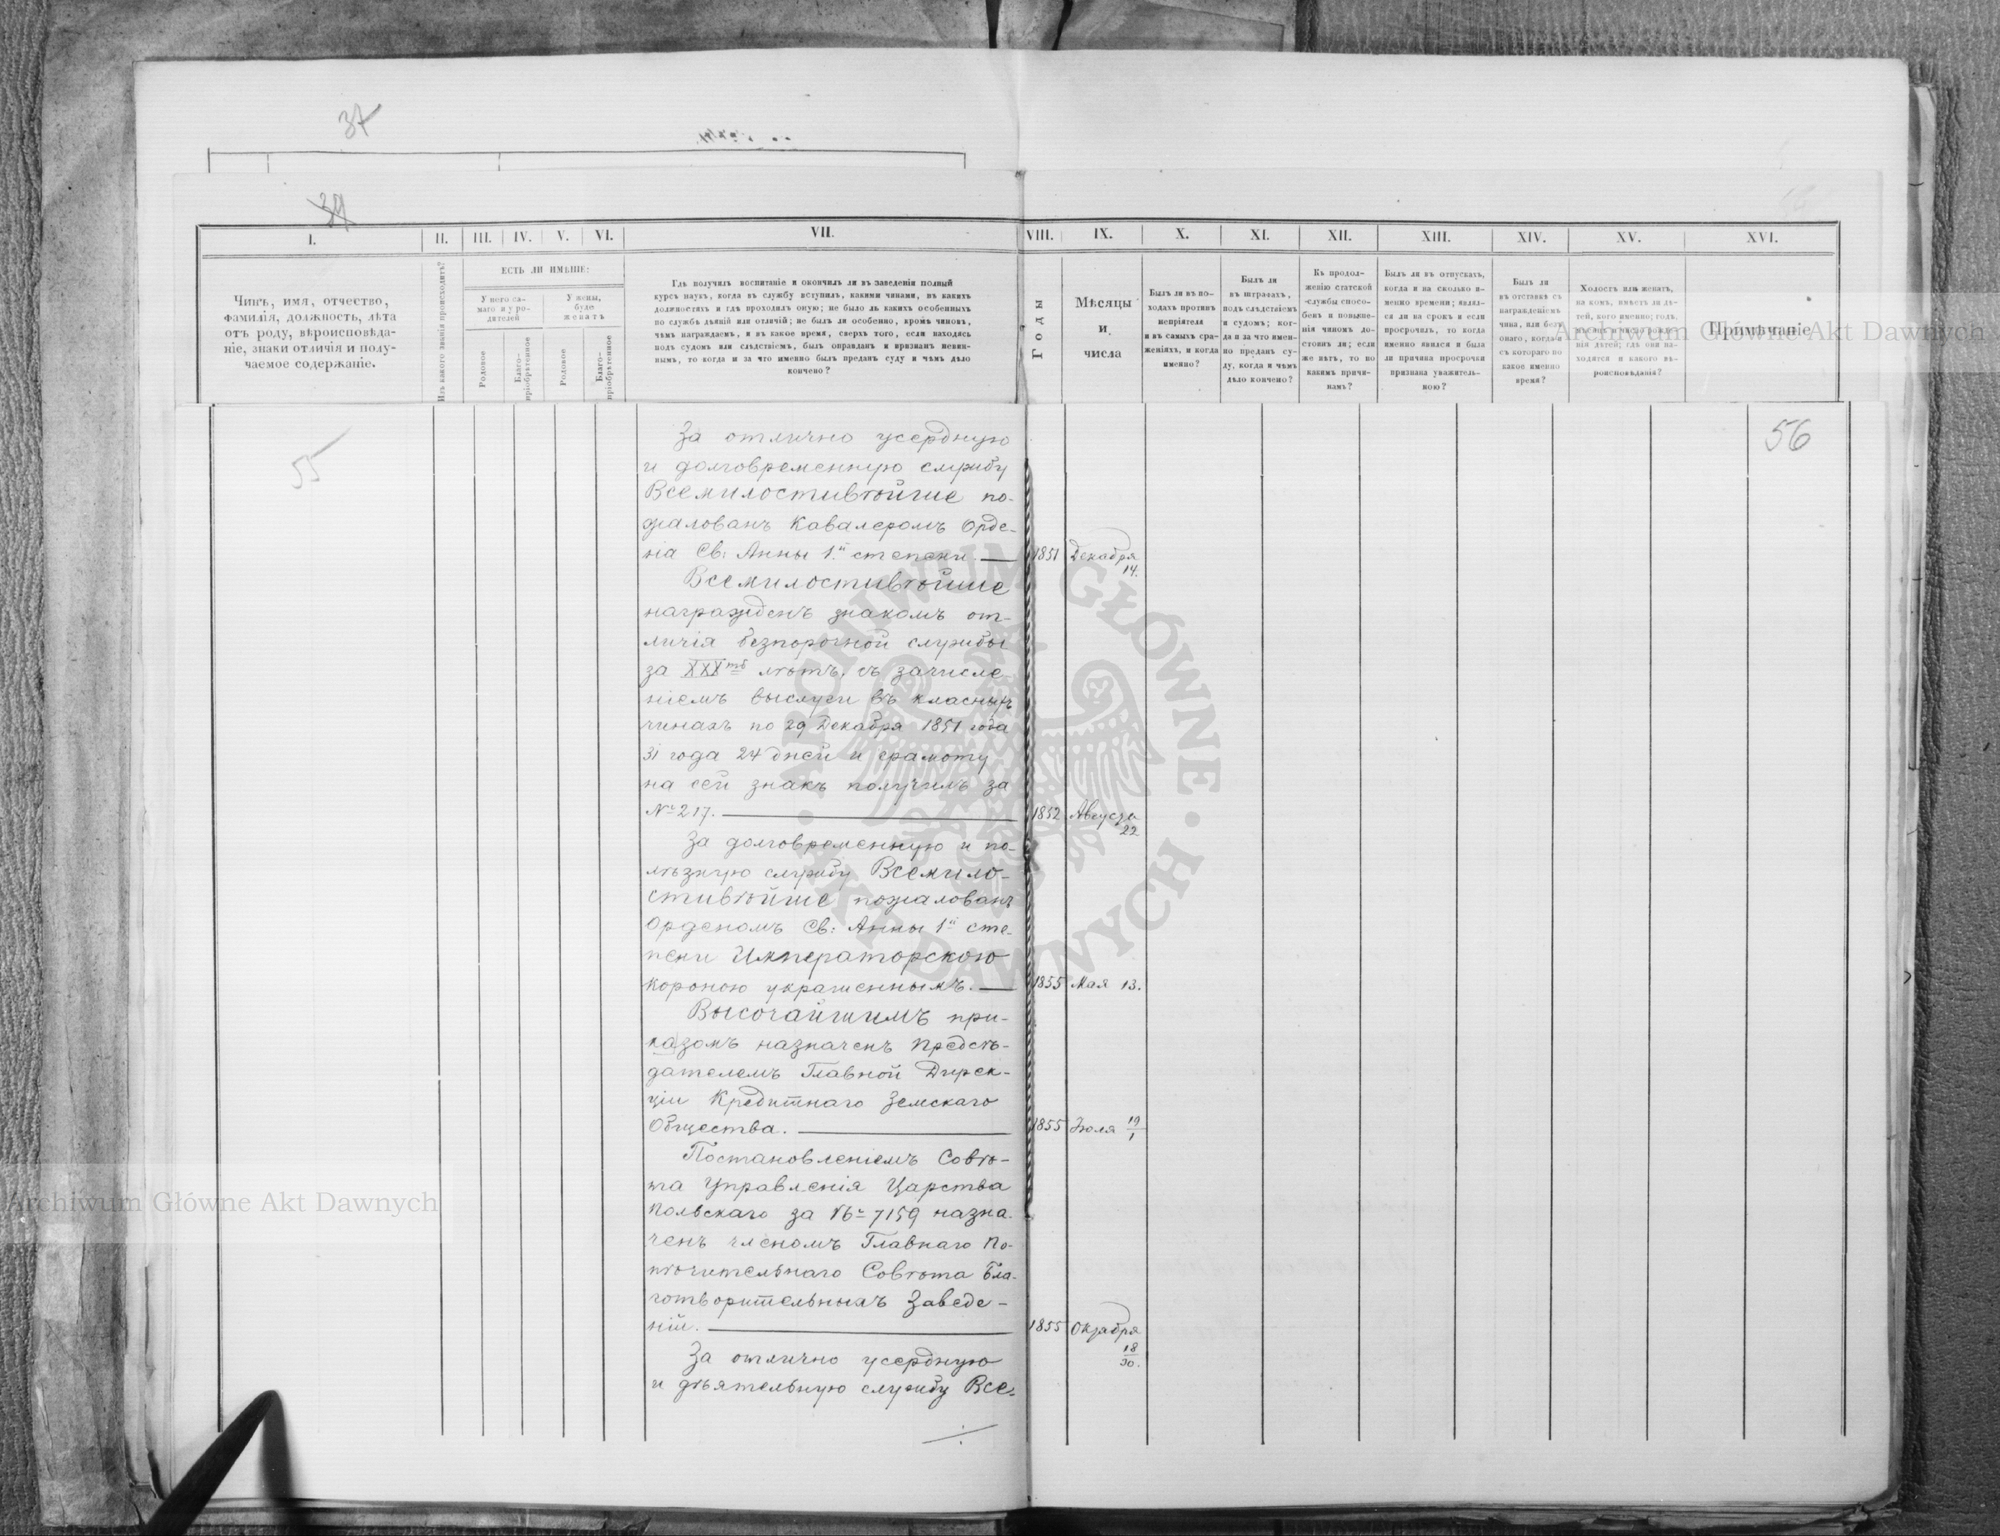 37
39
I.
II.
III.
IV.
V.
VI.
VII.
VIII.
IX.
X.
XI.
XII.
XIII.
XIV.
XV.
XVI.
Чинъ, имя, отчество,
фамилія, должность, лѣта
отъ роду, вѣроисповѣда-
ніе, знаки отличія и полу-
чаемое содержаніе.
Изъ какого званія происходитъ?
ЕСТЬ ЛИ ИМѢНІЕ:
У него са-
маго и у ро-
дителей
У жены,
буде
женатъ
Родовое
Благо-
пріобрѣтенное
Родовое
Благо-
пріобрѣтенное
Гдѣ получилъ воспитаніе и окончилъ ли въ заведеніи полный
курсъ наукъ, когда въ службу вступилъ, какими чинами, въ какихъ
должностяхъ и гдѣ проходилъ оную; не было ль какихъ особенныхъ
по службѣ дѣяній или отличій; не былъ ли особенно, кромѣ чиновъ,
чѣмъ награждаемъ, и въ какое время, сверхъ того, если находясь
подъ судомъ или слѣдствіемъ, былъ оправданъ и признанъ невин-
нымъ, то когда и за что именно былъ преданъ суду и чѣмъ дѣло
кончено?
Годы
Мѣсяцы
и
числа
Былъ ли въ по-
ходахъ противъ
непріятеля
и въ самыхъ сра-
женіяхъ, и когда
именно?
Былъ ли
въ штрафахъ,
подъ слѣдствіемъ
и судомъ; ког-
да и за что имен-
но преданъ су-
ду, когда и чѣмъ
дѣло кончено?
Къ продол-
женію статской
службы спосо-
бенъ и повыше-
нія чиномъ до-
стоинъ ли; если
же нѣтъ, то по
какимъ причи-
намъ?
Былъ ли въ отпускахъ,
когда и на сколько и-
менно времени; являл-
ся ли на срокъ и если
просрочилъ, то когда
именно явился и была
ли причина просрочки
признана уважитель-
ною?
Былъ ли
въ отставкѣ съ
награжденіемъ
чина, или безъ
онаго, когда и
съ котораго по
какое именно
время?
Холостъ или женатъ,
на комъ, имѣетъ ли дѣ-
тей, кого именно; годъ,
мѣсяцъ и число рожде-
нія дѣтей; гдѣ они на-
ходятся и какого вѣ-
роисповѣданія?
Примѣчаніе
Archiwum Główne Akt Dawnych
55
56
За отлично усердную
и долговременную службу
Всемилостивѣйше по-
жалованъ Кавалеромъ Орде-
на Св: Анны 1й степени.
1851 Декабря
14.
Всемилостивѣйше
награжденъ знакомъ от-
личія безпорочной службы
за XXXть лѣтъ, съ зачисле-
ніемъ выслуги въ класныхъ
чинахъ по 29 Декабря 1851 года
31 года 24 дней и грамоту
на сей знакъ получилъ за
№ 217.
1852 Августа
22
За долговременную и по-
лѣзную службу Всемило-
стивѣйше пожалованъ
Орденомъ Св: Анны 1й сте-
пени Императорскою
короною украшеннымъ.
1855 Мая 13.
Высочайшимъ при-
казомъ назначенъ Предсѣ-
дателемъ Главной Дирек-
ціи Кредитнаго Земскаго
Общества.
1855 Іюля 19/1
Постановленіемъ Совѣ-
та Управленія Царства
Польскаго за № 7159 назна-
ченъ членомъ Главнаго По-
печительнаго Совѣта Бла-
готворительныхъ Заведе-
ній.
1855 Октября
18/30.
За отлично усердную
и дѣятельную службу Все-
./.
ARCHIWUM GŁÓWNE · AKT DAWNYCH ·
Archiwum Główne Akt Dawnych